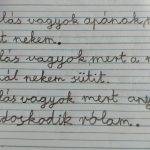 lás vagyok apának,
t nekem.
lás vagyok, mert a
ál nekem sütit.
lás vagyok mert any
doskodik rólam.